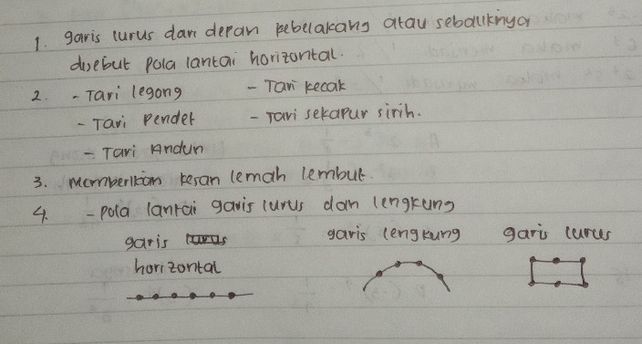 1. garis lurus dari depan kebelakang atau sebaliknya
disebut pola lantai horizontal.
2. - Tari legong - Tari kecak
- Tari Pendet - Tari sekapur sirih.
- Tari Andun
3. Memberikan kesan lemah lembut.
4. - Pola lantai garis lurus dan lengkung
garis garis lengkung garis lurus
horizontal